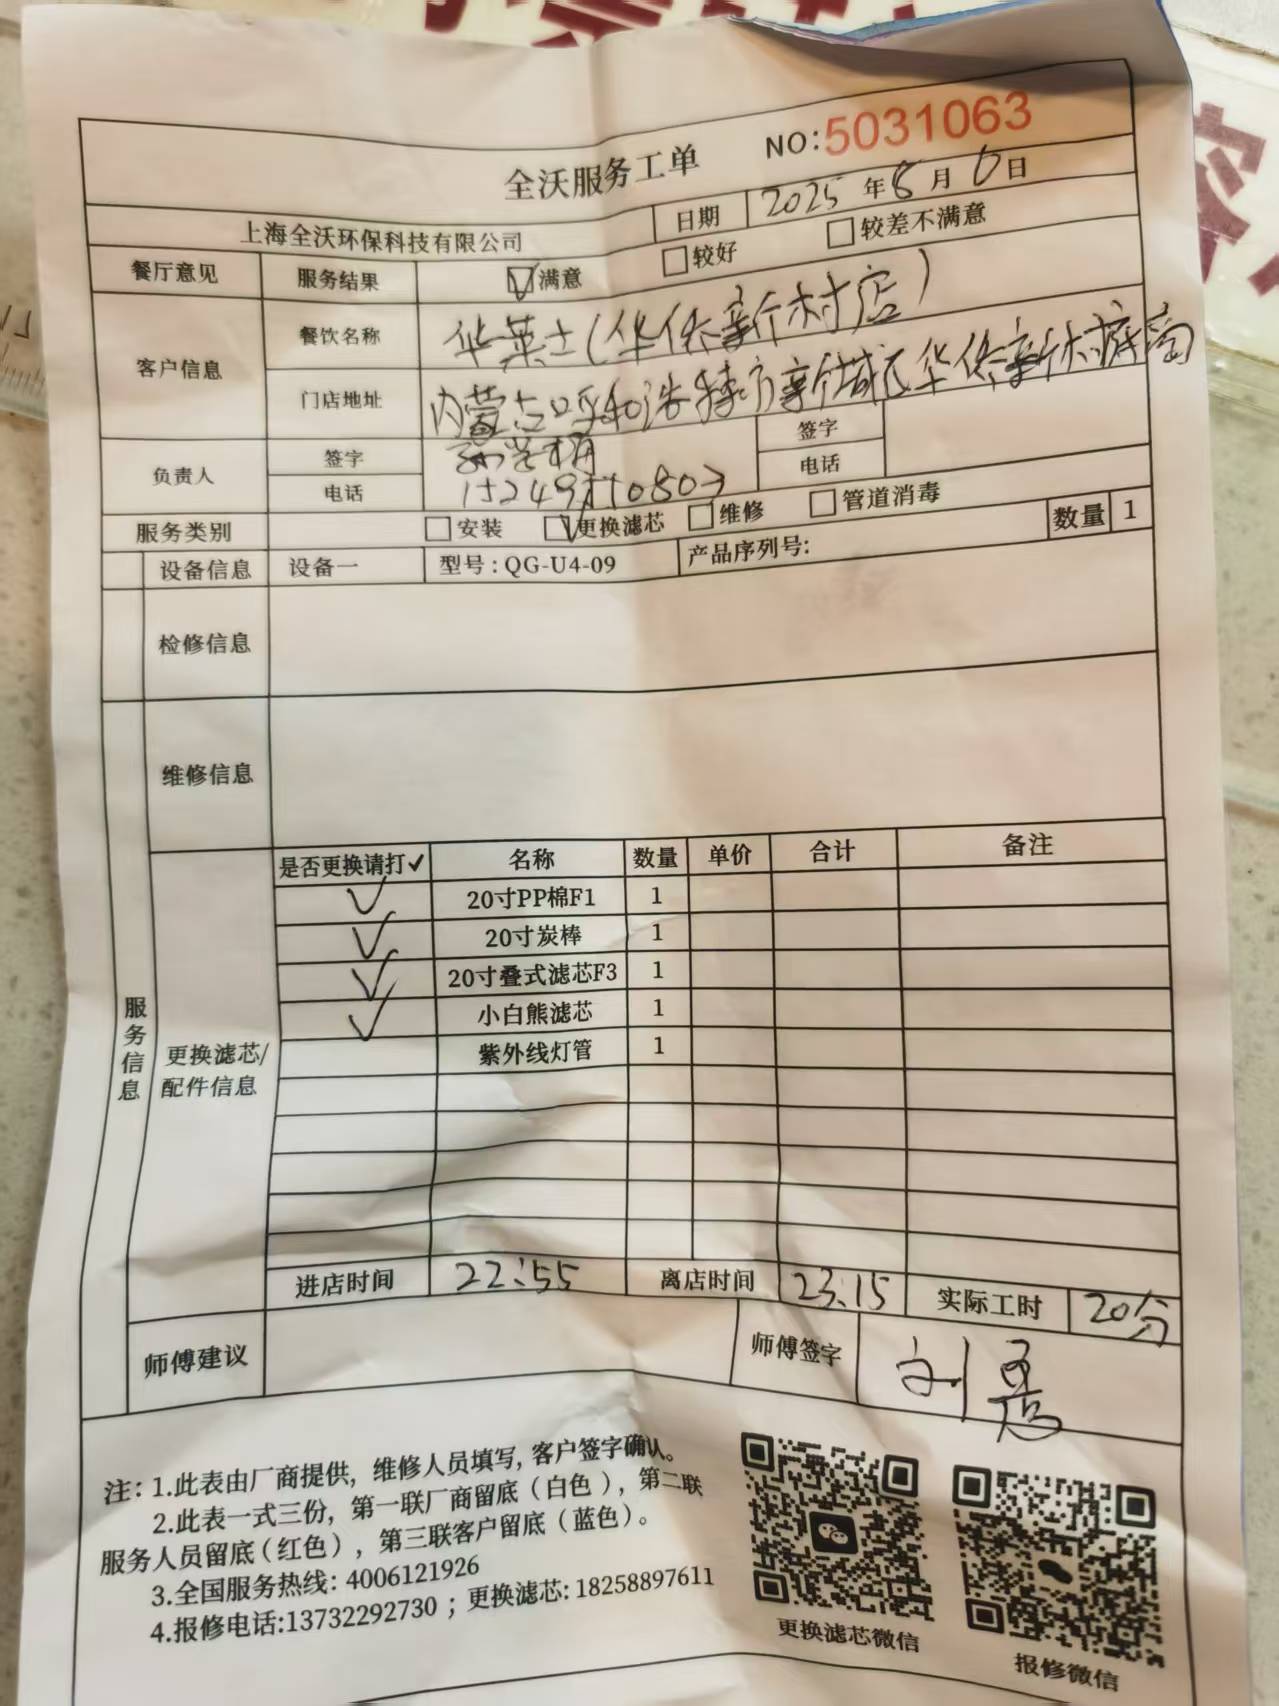 NO:5031063
全沃服务工单
上海全沃环保科技有限公司 日期 2025年8月6日
餐厅意见 服务结果 满意 较好 较差不满意
客户信息 餐饮名称 华莱士(华侨新村店)
门店地址 内蒙古呼和浩特市新城区华侨新村
负责人 签字 签字
电话 电话
服务类别 安装 更换滤芯 维修 管道消毒
设备信息 设备一 型号:QG-U4-09 产品序列号: 数量 1
检修信息
维修信息
服务信息
更换滤芯/配件信息
是否更换请打✓ 名称 数量 单价 合计 备注
✓ 20寸PP棉F1 1
✓ 20寸炭棒 1
✓ 20寸叠式滤芯F3 1
✓ 小白熊滤芯 1
紫外线灯管 1
进店时间 22:55 离店时间 23:15 实际工时 20分
师傅建议 师傅签字 刘
注:1.此表由厂商提供,维修人员填写,客户签字确认。
2.此表一式三份,第一联厂商留底(白色),第二联
服务人员留底(红色),第三联客户留底(蓝色)。
3.全国服务热线:4006121926
4.报修电话:13732292730;更换滤芯:18258897611
更换滤芯微信
报修微信